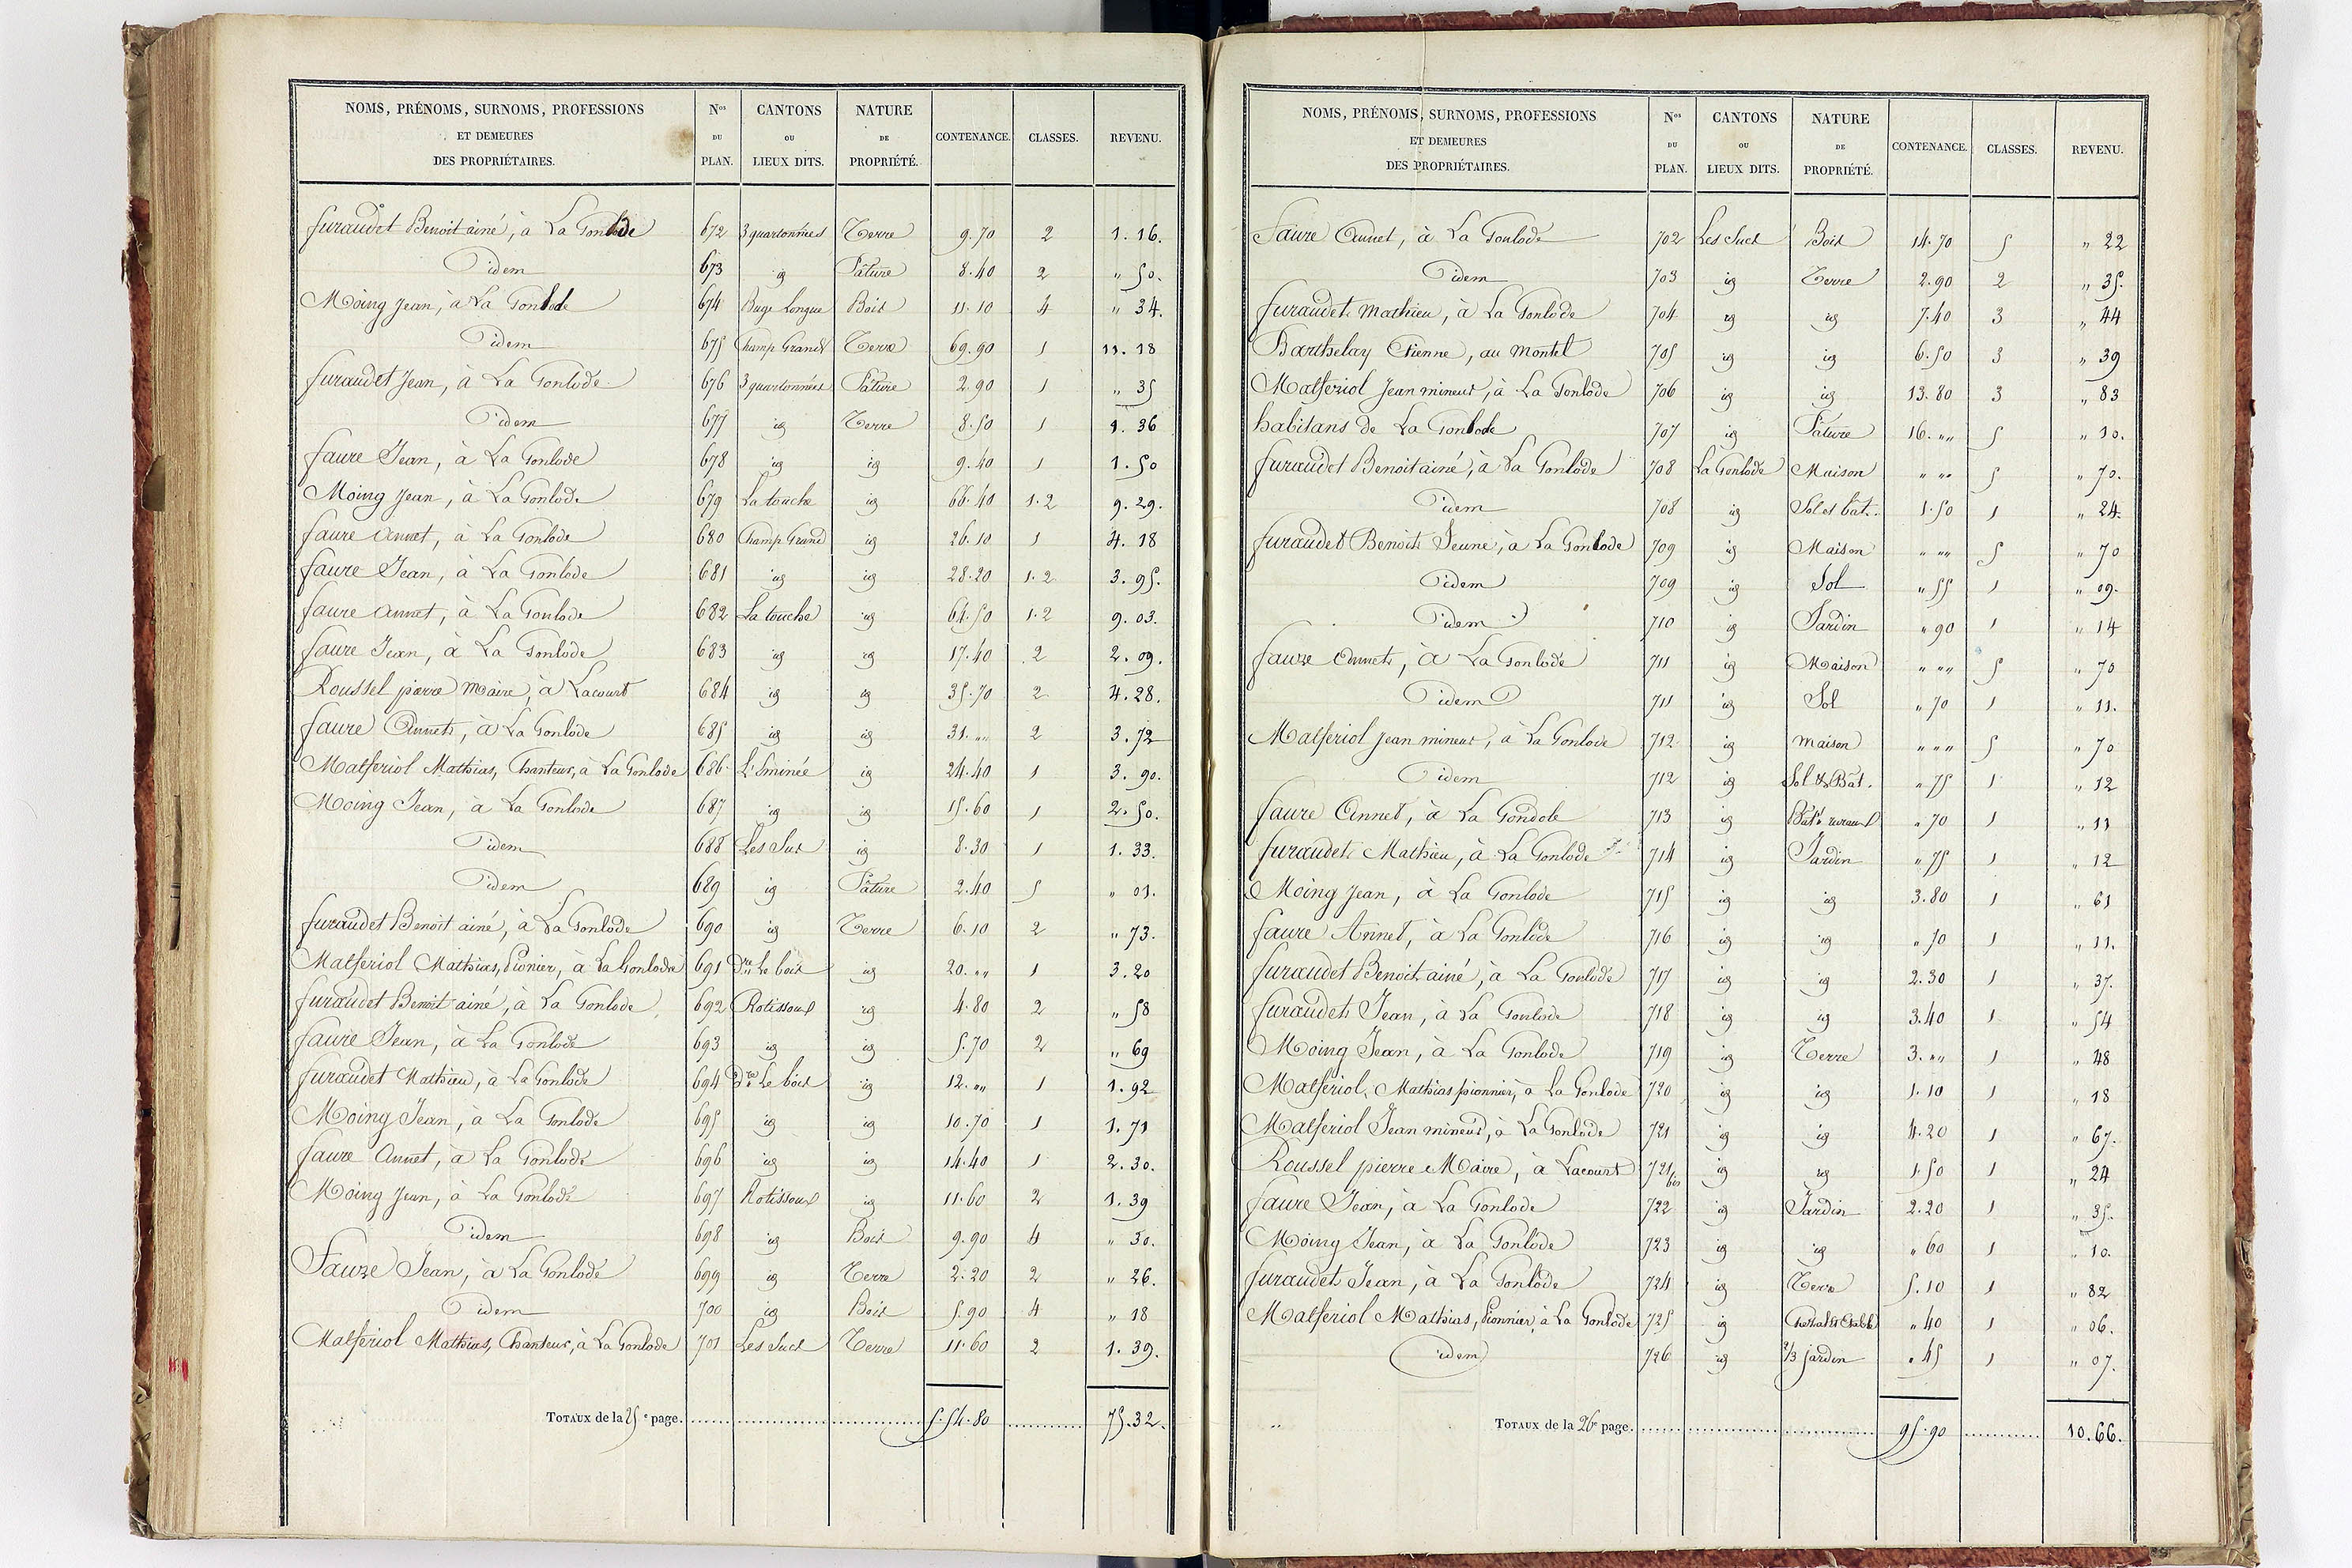 NOMS, PRÉNOMS, SURNOMS, PROFESSIONS ET DEMEURES DES PROPRIÉTAIRES. Nos DU PLAN. CANTONS OU LIEUX DITS. NATURE DE PROPRIÉTÉ. CONTENANCE. CLASSES. REVENU.
furaudet Benoit ainé, à La Gonlode 672 3 quartonnées Terre 9.70 2 1.16.
idem 673 id Pâture 8.40 2 " 50.
Moing Jean, à La Gonlode 674 Buge Longue Bois 11.10 4 " 34.
idem 675 Champ Grand Terre 69.90 1 11.18
furaudet Jean, à La Gonlode 676 3 quartonnées Pâture 2.90 1 " 35
idem 677 id Terre 8.50 1 1.36
faure Jean, à La Gonlode 678 id id 9.40 1 1.50
Moing Jean, à La Gonlode 679 La touche id 66.40 1.2 9.29.
faure annet, à La Gonlode 680 Champ Grand id 26.10 1 4.18
faure Jean, à La Gonlode 681 id id 28.20 1.2 3.95.
faure annet, à La Gonlode 682 La touche id 64.50 1.2 9.03.
faure Jean, à La Gonlode 683 id id 17.40 2 2.09.
Roussel pierre Maire, à Lacourt 684 id id 35.70 2 4.28.
faure Annet, à La Gonlode 685 id id 31. "" 2 3.72
Malferiol Mathias, Chanteur, à La Gonlode 686 L'Eminée id 24.40 1 3.90.
Moing Jean, à La Gonlode 687 id id 15.60 1 2.50.
idem 688 Les Suc id 8.30 1 1.33.
idem 689 id Pâture 2.40 5 " 01.
furaudet Benoit ainé, à La Gonlode 690 id Terre 6.10 2 " 73.
Malferiol Mathias, Pionier, à La Gonlode 691 Dre Le bois id 20. "" 1 3.20
furaudet Benoit ainé, à La Gonlode 692 Rotissoux id 4.80 2 " 58
faure Jean, à La Gonlode 693 id id 5.70 2 " 69
furaudet Mathieu, à La Gonlode 694 Dre Le bois id 12. "" 1 1.92
Moing Jean, à La Gonlode 695 id id 10.70 1 1.71
faure Annet, à La Gonlode 696 id id 14.40 1 2.30.
Moing Jean, à La Gonlode 697 Rotissoux id 11.60 2 1.39
idem 698 id Bois 9.90 4 " 30.
Faure Jean, à La Gonlode 699 id Terre 2.20 2 " 26.
idem 700 id Bois 5.90 4 " 18
Malferiol Mathias, Chanteur, à La Gonlode 701 Les Sucs Terre 11.60 2 1.39.
TOTAUX de la 25e page. 5.54.80 75.32.
NOMS, PRÉNOMS, SURNOMS, PROFESSIONS ET DEMEURES DES PROPRIÉTAIRES. Nos DU PLAN. CANTONS OU LIEUX DITS. NATURE DE PROPRIÉTÉ. CONTENANCE. CLASSES. REVENU.
Faure Annet, à La Gonlode 702 Les Sucs Bois 14.70 5 " 22
idem 703 id Terre 2.90 2 " 35.
furaudet Mathieu, à La Gonlode 704 id id 7.40 3 " 44
Barthelay Etienne, au Montel 705 id id 6.50 3 " 39
Malferiol Jean mineur, à La Gonlode 706 id id 13.80 3 " 83
habitans de La Gonlode 707 id Pâture 16. "" 5 " 10.
furaudet Benoit ainé, à La Gonlode 708 La Gonlode Maison " "" 5 " 70.
idem 708 id Sol et bât. 1.50 1 " 24.
furaudet Benoit Jeune, à La Gonlode 709 id Maison " "" 5 " 70
idem 709 id Sol " 55 1 " 09.
idem 710 id Jardin " 90 1 " 14
faure Annet, à La Gonlode 711 id Maison " "" 5 " 70
idem 711 id Sol " 70 1 " 11.
Malferiol Jean mineur, à La Gonlode 712 id maison " "" 5 " 70
idem 712 id Sol & Bat. " 75 1 " 12
faure Annet, à La Gondole 713 id Bât. rural " 70 1 " 11
furaudet Mathieu, à La Gonlode 714 id Jardin " 75 1 " 12
Moing Jean, à La Gonlode 715 id id 3.80 1 " 61
faure Annet, à La Gonlode 716 id id " 70 1 " 11.
furaudet Benoit ainé, à La Gonlode 717 id id 2.30 1 " 37.
furaudet Jean, à La Gonlode 718 id id 3.40 1 " 54
Moing Jean, à La Gonlode 719 id Terre 3. "" 1 " 48
Malferiol, Mathias pionnier, à La Gonlode 720 id id 1.10 1 " 18
Malferiol Jean mineur, à La Gonlode 721 id id 4.20 1 " 67.
Roussel pierre Maire, à Lacourt 721 bis id id 1.50 1 " 24
faure Jean, à La Gonlode 722 id Jardin 2.20 1 " 35.
Moing Jean, à La Gonlode 723 id id " 60 1 " 10.
furaudet Jean, à La Gonlode 724 id Terre 5.10 1 " 82
Malferiol Mathias, Pionnier, à La Gonlode 725 id " 40 1 " 06.
idem 726 id 2/3 jardin " 45 1 " 07.
TOTAUX de la 26e page. 95.90 10.66.